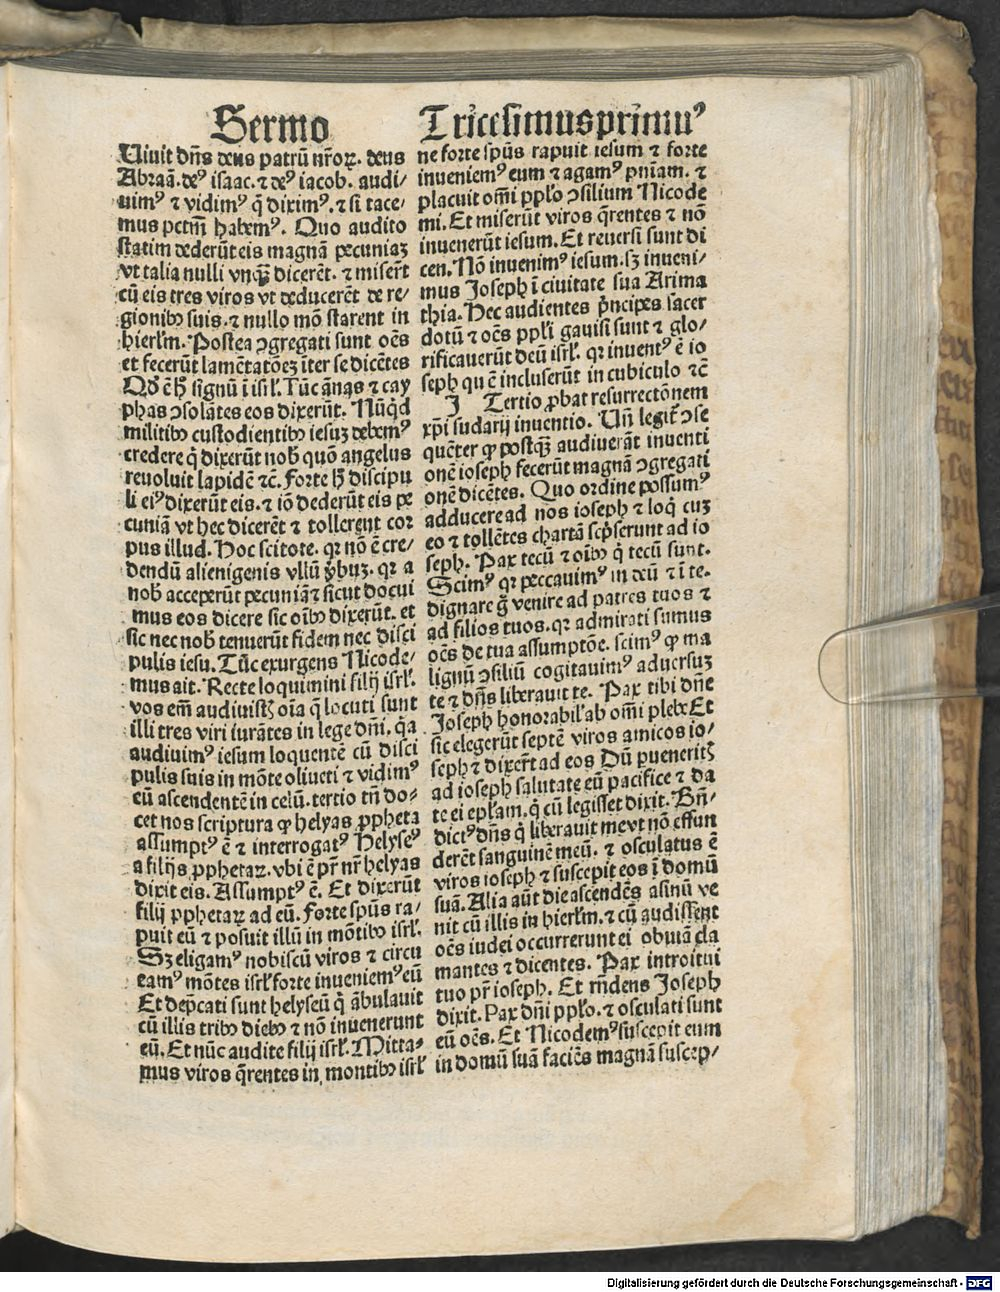 Sermo Tricesimusprimuꝰ
Uiuit dn̄s deus patrū nr̄oꝝ. deus
Abraā. deꝰ isaac. ⁊ deꝰ iacob. audi/
uimꝰ ⁊ vidimꝰ q̄ diximꝰ. ⁊ si tace/
mus pctm̄ habemꝰ. Quo audito
statim dederūt eis magnā pecuniaꝫ
vt talia nulli vnqꝫ̄ dicerēt. ⁊ miser̄t
cū eis tres viros vt deducerēt de re/
gionibꝰ suis. ⁊ nullo mō starent in
hierl̄m. Postea ꝯgregati sunt oēs
et fecerūt lamētatōeꝫ īter se dicētes
Qd̄ ē h̄ signū ī isrl̄. Tūc ānas ⁊ cay
phas ꝯsolātes eos dixerūt. Nūqd̄
militibꝰ custodientibꝰ iesuꝫ debemꝰ
credere q̄ dixerūt nob̄ quō angelus
reuoluit lapidē ⁊c̄. Forte h̄ discipu
li eiꝰ dixerūt eis. ⁊ iō dederūt eis pe
cuniā vt hec dicerēt ⁊ tollerent cor
pus illud. Hoc scitote. qꝛ nō ē cre/
dendū alienigenis vllū v̄buꝫ. qꝛ a
nob̄ acceperūt pecuniā ⁊ sicut docui
mus eos dicere sic oībꝰ dixerūt. et
sic nec nob̄ tenuerūt fidem nec disci
pulis iesu. Tūc exurgens Nicode/
mus ait. Recte loquimini filij isrl̄.
vos em̄ audiuistꝭ oīa q̄ locuti sunt
illi tres viri iurātes in lege dn̄i. q̄a
audiuimꝰ iesum loquentē cū disci
pulis suis in mōte oliueti ⁊ vidimꝰ
eū ascendentē in celū. tertio tn̄ do-
cet nos scriptura ꝙ helyas ꝓpheta
assumptꝰ ē ⁊ interrogatꝰ Helyseꝰ
a filijs ꝓphetaꝝ. vbi ē pr̄ nr̄ helyas
dixit eis. Assumptꝰ ē. Et dixerūt
filij ꝓphetaꝝ ad eū. Forte spūs ra/
puit eū ⁊ posuit illū in mōtibꝰ isrl̄.
Sꝫ eligamꝰ nobiscū viros ⁊ circu
eamꝰ mōtes isrl̄ forte inueniemꝰ eū
Et dep̄cati sunt helyseū q̄ ābulauit
cū illis tribꝰ diebꝰ ⁊ nō inuenerunt
eū. Et nūc audite filij isrl̄. Mitta-
mus viros q̄rentes in montibꝰ isrl̄
ne forte spūs rapuit iesum ⁊ forte
inueniemꝰ eum ⁊ agamꝰ pn̄iam. ⁊
placuit om̄i pplo ꝯsilium Nicode
mi. Et miserūt viros q̄rentes ⁊ nō
inuenerūt iesum. Et reuersi sunt di
cen. Nō inuenimꝰ iesum. sꝫ inueni/
mus Joseph ī ciuitate sua Arima
thia. Hec audientes p̄ncipes sacer
dotū ⁊ oēs ppl̄i gauisi sunt ⁊ glo/
rificauerūt deū isrl̄. qꝛ inuentꝰ ē io
seph quē incluserūt in cubiculo ⁊c̄
J Tertio ꝓbat resurrectōnem
xp̄i sudarij inuentio. Un̄ legit̄ ꝯse
quēter ꝙ postqꝫ̄ audiuerāt inuenti
onē ioseph fecerūt magnā ꝯgregati
onē dicētes. Quo ordine possumꝰ
adducere ad nos ioseph ⁊ loq̄ cuꝫ
eo ⁊ tollētes chartā scp̄serunt ad io
seph. Pax tecū ⁊ oībꝰ q̄ tecū sunt.
Scimꝰ qꝛ peccauimꝰ in deū ⁊ ī te.
dignare g̊ venire ad patres tuos ⁊
ad filios tuos. qꝛ admirati sumus
oēs de tua assumptōe. scimꝰ ꝙ ma
lignū ꝯsiliū cogitauimꝰ aduersuꝫ
te ⁊ dn̄s liberauit te. Pax tibi dn̄e
Joseph honorabil̄ ab om̄i plebe Et
sic elegerūt septē viros amicos io/
seph ⁊ dixer̄t ad eos Dū puenerit̄
ad ioseph salutate eū pacifice ⁊ da
te ei epl̄am. q̄ cū legisset dixit. Bn̄-
dictꝰ dn̄s q̄ liberauit me vt nō effun
derēt sanguinē meū. ⁊ osculatus ē
viros ioseph ⁊ suscepit eos ī domū
suā. Alia aūt die ascendēs asinū ve
nit cū illis in hierl̄m. ⁊ cū audissent
oēs iudei occurrerunt ei obuiā cla
mantes ⁊ dicentes. Pax introitui
tuo pr̄ ioseph. Et rn̄dens Joseph
dixit. Pax dn̄i pplo. ⁊ osculati sunt
eū oēs. Et Nicodemꝰ suscepit eum
in domū suā faciēs magnā suscep/
Digitalisierung gefördert durch die Deutsche Forschungsgemeinschaft - DFG